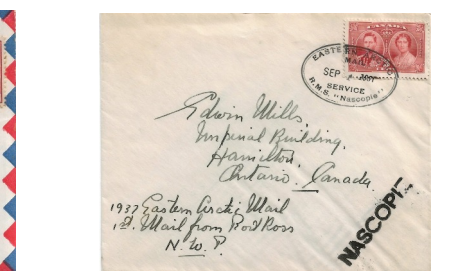 CANADA
EASTERN ARCTIC
MAIL
SEP
SERVICE
R.M.S. "Nascopie"
Edwin Mills,
Imperial Building,
Hamilton,
Ontario, Canada.
1937 Eastern Arctic Mail
1st. Mail from Fort Ross
N.W.T.
NASCOPIE